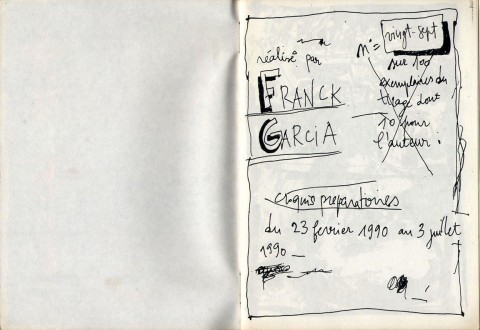 réalisé par
FRANCK
GARCIA
n°=
vingt-sept
sur 100
exemplaires du
tirage dont
10 pour
l'auteur :
croquis preparatoires
du 23 fevrier 1990 au 3 juillet
1990_